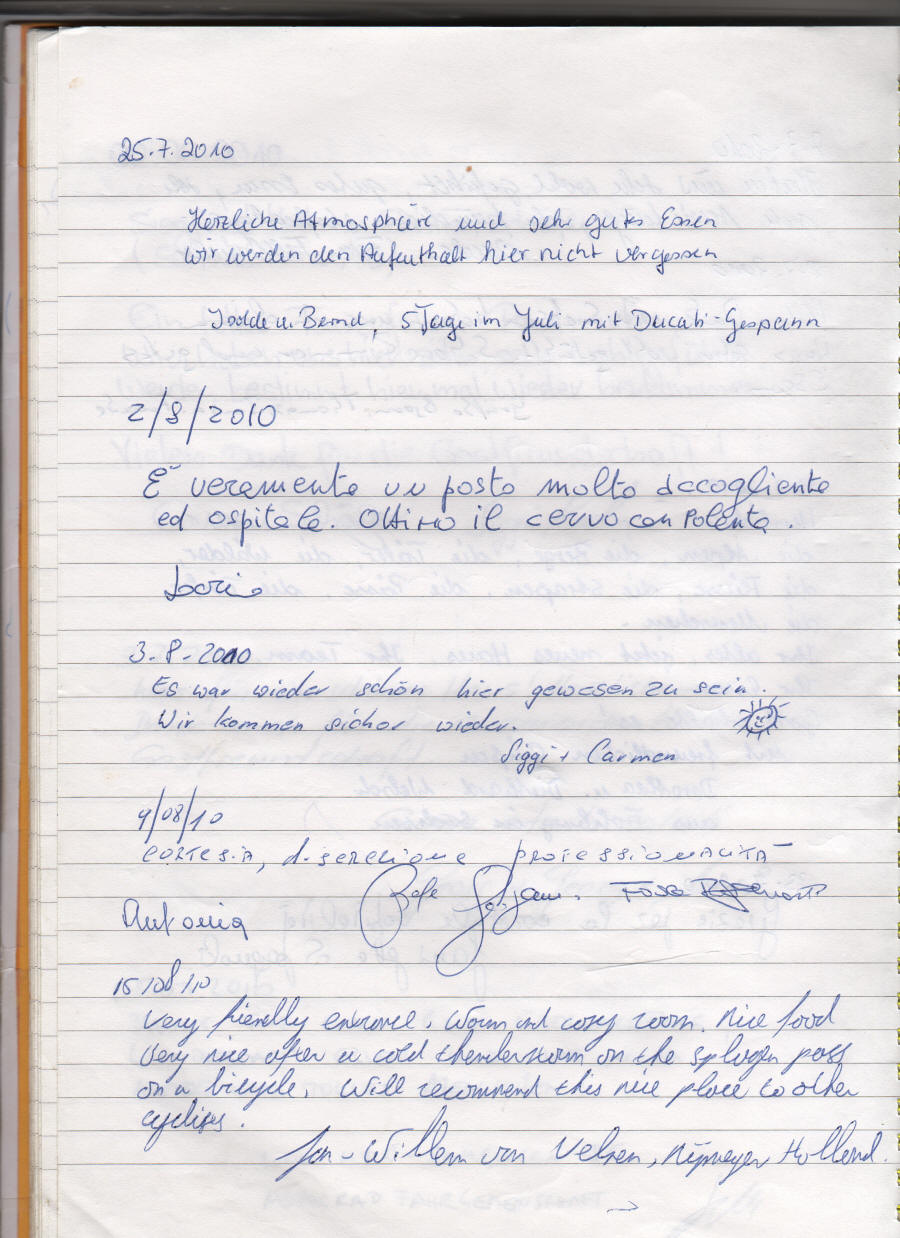 25.7.2010
Herzliche Atmosphäre und sehr gutes Essen
wir werden den Aufenthalt hier nicht vergessen
u. Bernd, 5 Tage im Juli mit Ducati-Gespann
2/8/2010
È veramente un posto molto accogliente
ed ospitale. Ottimo il cervo con Polenta.
3.8.2010
Es war wieder schön hier gewesen zu sein.
Wir kommen sicher wieder.
Siggi + Carmen
9/08/10
CORTESIA, discrezione professionalità
Antonia
15/08/10
Very friendly entrance, Warm and cosy room. Nice food
Very nice after a cold thunderstorm on the splugen pass
on a bicycle, Will recommend this nice place to other
cyclists.
Jan-Willem van Velzen, Nijmegen Holland.
→